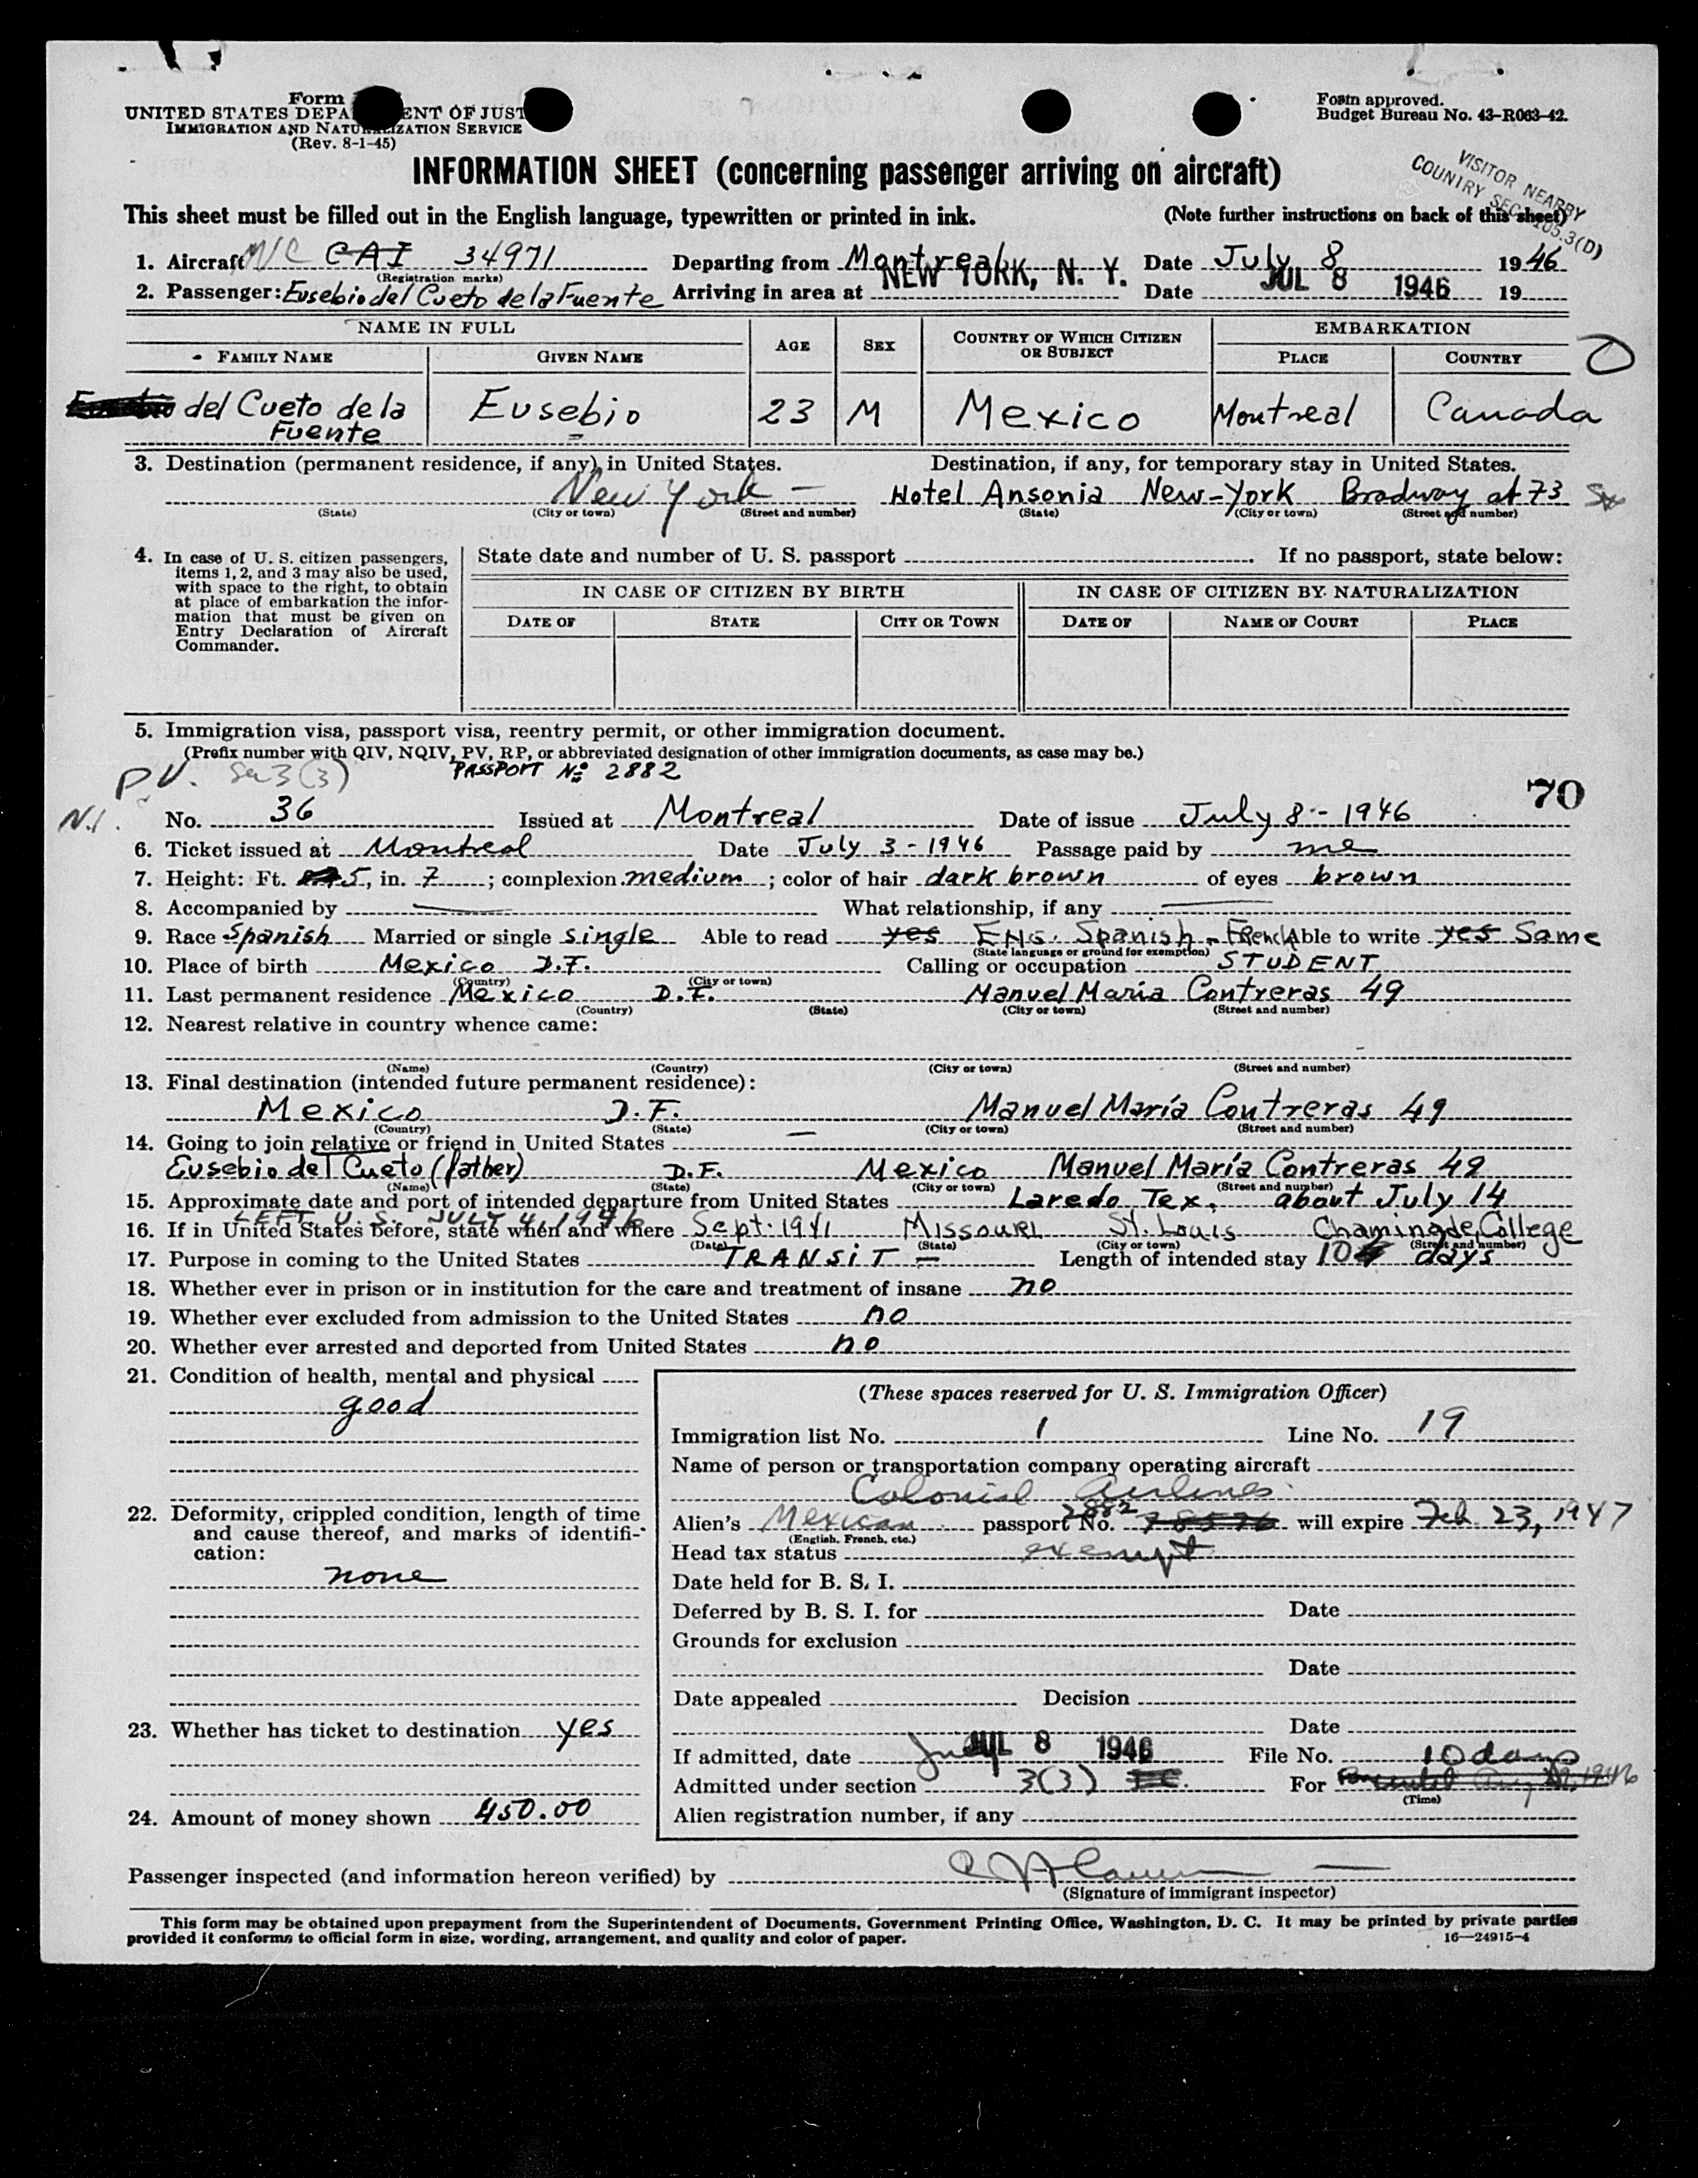 Form
UNITED STATES DEPA ENT OF JUST
IMMIGRATION AND NATURALIZATION SERVICE
(Rev. 8-1-45)
Form approved.
Budget Bureau No. 43-R063-42.
INFORMATION SHEET (concerning passenger arriving on aircraft)
VISITOR NEARBY
COUNTRY SEC. 105.3(D)
This sheet must be filled out in the English language, typewritten or printed in ink. (Note further instructions on back of this sheet)
1. Aircraft N/C CAI 34971 Departing from Montreal Date July 8 1946
(Registration marks)
2. Passenger: Eusebio del Cueto de la Fuente Arriving in area at NEW YORK, N. Y. Date JUL 8 1946 19
NAME IN FULL AGE SEX COUNTRY OF WHICH CITIZEN OR SUBJECT EMBARKATION
FAMILY NAME GIVEN NAME PLACE COUNTRY
del Cueto de la Eusebio 23 M Mexico Montreal Canada
Fuente
3. Destination (permanent residence, if any) in United States. Destination, if any, for temporary stay in United States.
New York - Hotel Ansonia New-York Bradway at 73 St
(State) (City or town) (Street and number) (State) (City or town) (Street and number)
4. In case of U. S. citizen passengers, items 1, 2, and 3 may also be used, with space to the right, to obtain at place of embarkation the information that must be given on Entry Declaration of Aircraft Commander.
State date and number of U. S. passport . If no passport, state below:
IN CASE OF CITIZEN BY BIRTH IN CASE OF CITIZEN BY NATURALIZATION
DATE OF STATE CITY OR TOWN DATE OF NAME OF COURT PLACE
5. Immigration visa, passport visa, reentry permit, or other immigration document.
(Prefix number with QIV, NQIV, PV, RP, or abbreviated designation of other immigration documents, as case may be.)
P.V. Sec 3(3) PASSPORT No 2882
70
N.I.
No. 36 Issued at Montreal Date of issue July 8 - 1946
6. Ticket issued at Montreal Date July 3 - 1946 Passage paid by me
7. Height: Ft. 5, in. 7; complexion medium; color of hair dark brown of eyes brown
8. Accompanied by — What relationship, if any —
9. Race Spanish Married or single single Able to read yes ENG. Spanish - French Able to write yes Same
(State language or ground for exemption)
10. Place of birth Mexico D.F. Calling or occupation STUDENT
(Country) (City or town)
11. Last permanent residence Mexico D.F. Manuel María Contreras 49
(Country) (State) (City or town) (Street and number)
12. Nearest relative in country whence came:
(Name) (Country) (City or town) (Street and number)
13. Final destination (intended future permanent residence):
Mexico D.F. Manuel María Contreras 49
(Country) (State) (City or town) (Street and number)
14. Going to join relative or friend in United States —
Eusebio del Cueto (father) D.F. Mexico Manuel María Contreras 49
(Name) (State) (City or town) (Street and number)
15. Approximate date and port of intended departure from United States Laredo Tex. about July 14
LEFT U.S. JULY 4, 1946
16. If in United States before, state when and where Sept. 1941 Missouri St. Louis Chaminade College
(Date) (State) (City or town) (Street and number)
17. Purpose in coming to the United States TRANSIT - Length of intended stay 10 days
18. Whether ever in prison or in institution for the care and treatment of insane no
19. Whether ever excluded from admission to the United States no
20. Whether ever arrested and deported from United States no
21. Condition of health, mental and physical
good
22. Deformity, crippled condition, length of time and cause thereof, and marks of identification:
none
23. Whether has ticket to destination yes
24. Amount of money shown 450.00
(These spaces reserved for U. S. Immigration Officer)
Immigration list No. 1 Line No. 19
Name of person or transportation company operating aircraft
Colonial Airlines
Alien's Mexican passport No. 2882 78576 will expire Feb. 23, 1947
(English, French, etc.)
Head tax status exempt
Date held for B. S. I.
Deferred by B. S. I. for Date
Grounds for exclusion
Date
Date appealed Decision
Date
If admitted, date July JUL 8 1946 File No. 10 days
Admitted under section 3(3) For
(Time)
Alien registration number, if any
Passenger inspected (and information hereon verified) by
(Signature of immigrant inspector)
This form may be obtained upon prepayment from the Superintendent of Documents, Government Printing Office, Washington, D. C. It may be printed by private parties
provided it conforms to official form in size, wording, arrangement, and quality and color of paper.
16—24915-4